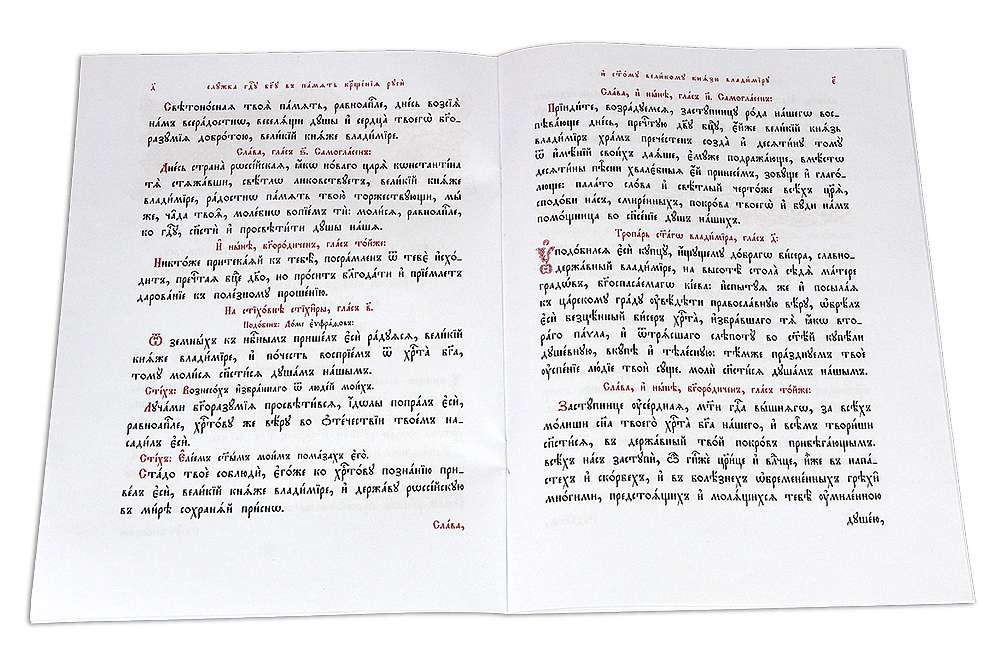 д҃ слꙋжба гдⷭ҇ꙋ бг҃ꙋ въ па́мѧть кр҃ще́нїѧ рꙋсѝ
Свѣтоно́снаѧ твоѧ̀ па́мѧть, равноап҇ле, дне́сь возсїѧ̀
на́мъ всера́достнѡ, веселѧ́щи дꙋшы̀ и҆ сердца̀ твоегѡ̀ бг҃о-
разꙋ́мїѧ добро́тою, вели́кїй кнѧ́же влади́мїре.
Сла́ва, гла́съ ѕ҃. Самогла́сенъ:
Дне́сь страна̀ рѡссі́йскаѧ, ꙗ҆́кѡ но́ваго царѧ̀ кѡнстанті́на
тѧ̀ стѧжа́вши, свѣ́тлѡ ликовствꙋ́етъ, вели́кїй кнѧ́же
влади́мїре, ра́достнѡ па́мѧть твою̀ торжествꙋ́ющи, мы́
же, ча̑да твоѧ̑, моле́бнѡ вопїе́мъ тѝ: моли́сѧ, равноап҇ле,
ко гдⷭ҇ꙋ, сп҃стѝ и҆ просвѣти́ти дꙋ́шы на́шѧ.
И҆ ны́нѣ, бг҃оро́диченъ, гла́съ то́йже:
Никто́же притека́ѧй къ тебѣ̀, посра́мленъ ѿ тебє̀ и҆схо́-
дитъ, пречⷭ҇таѧ бцⷣе дв҃о, но про́ситъ блг҃ода́ти и҆ прїе́млетъ
дарова́нїе къ поле́зномꙋ проше́нїю.
На стїхо́внѣ стїхи̑ры, гла́съ в҃.
Подо́бенъ: До́ме є҆ѵфра́ѳовъ:
Ѿ земны́хъ къ нбⷭ҇нымъ прише́лъ є҆сѝ ра́дꙋѧсѧ, вели́кїй
кнѧ́же влади́мїре, и҆ по́честь воспрїе́мъ ѿ хрⷭ҇та̀ бг҃а,
томꙋ̀ моли́сѧ сп҃сти́сѧ дꙋша́мъ на́шымъ.
Сті́хъ: Вознесо́хъ и҆збра́ннаго ѿ люде́й мои́хъ.
Лꙋча́ми бг҃оразꙋ́мїѧ просвѣти́всѧ, і҆́дѡлы попра́лъ є҆сѝ,
равноап҇ле, хрⷭ҇то́вꙋ же вѣ́рꙋ во ѻ҆те́чествїи твое́мъ на-
сади́лъ є҆сѝ.
Сті́хъ: Є҆ле́емъ ст҃ы́мъ мои́мъ пома́захъ є҆го̀.
Ста́до твоѐ соблюдѝ, є҆го́же ко хрⷭ҇то́вꙋ позна́нїю при-
ве́лъ є҆сѝ, вели́кїй кнѧ́же влади́мїре, и҆ держа́вꙋ рѡссі́йскꙋю
въ ми́рѣ сохранѧ́й при́снѡ.
Сла́ва,
и҆ ст҃о́мꙋ вели́комꙋ кнѧ́зю влади́мїрꙋ є҃
Сла́ва, и҆ ны́нѣ, гла́съ и҃. Самогла́сенъ:
Прїиди́те, возра́дꙋемсѧ, застꙋ́пницꙋ ро́да на́шегѡ вос-
пѣва́юще дне́сь, пречⷭ҇тꙋю дв҃ꙋ бцⷣꙋ, є҆́йже вели́кїй кнѧ́зь
влади́мїръ хра́мъ пречⷭ҇тенъ созда̀ и҆ десѧти́нꙋ томꙋ̀
ѿ и҆мѣ́нїй свои́хъ даѧ́ше, є҆мꙋ́же подража́юще, вмѣ́стѡ
десѧти́ны пѣ́сни хвале́бныѧ є҆́й принесе́мъ, зовꙋ́ще и҆ глаго́-
люще: пала́то сло́ва и҆ свѣ́тлый черто́же всѣ́хъ цр҃ѧ̀,
сподо́би на́съ, смире́нныхъ, покро́ва твоегѡ̀ и҆ бꙋ́ди на́мъ
помо́щница во сп҃се́нїе дꙋ́шъ на́шихъ.
Тропа́рь ст҃а́гѡ влади́мїра, гла́съ д҃:
Оу҆подо́билсѧ є҆сѝ кꙋпцꙋ̀, и҆́щꙋщемꙋ до́брагѡ би́сера, сла́вно-
держа́вный влади́мїре, на высотѣ̀ стола̀ сѣдѧ̀ ма́тере
градѡ́въ, бг҃оспаса́емагѡ кі́ева: и҆спытꙋ́ѧ же и҆ посыла́ѧ
къ ца́рскомꙋ гра́дꙋ ᲂу҆вѣ́дѣти правосла́внꙋю вѣ́рꙋ, ѡ҆брѣ́лъ
є҆сѝ безцѣ́нный би́серъ хрⷭ҇та̀, и҆збра́вшаго тѧ̀ ꙗ҆́кѡ вто-
ра́го па́ѵла, и҆ ѿтрѧ́сшаго слѣпотꙋ̀ во ст҃ѣ́й кꙋпе́ли
дꙋше́внꙋю, вкꙋ́пѣ и҆ тѣле́снꙋю: тѣ́мже пра́зднꙋемъ твоѐ
ᲂу҆спе́нїе лю́дїе твоѝ сꙋ́ще. молѝ сп҃сти́сѧ дꙋша́мъ на́шымъ.
Сла́ва, и҆ ны́нѣ, бг҃оро́диченъ, гла́съ то́йже:
Застꙋ́пнице ᲂу҆се́рднаѧ, мт҃и гдⷭ҇а вы́шнѧгѡ, за всѣ́хъ
мо́лиши сн҃а твоего̀ хрⷭ҇та̀ бг҃а на́шего, и҆ всѣ́мъ твори́ши
сп҃сти́сѧ, въ держа́вный тво́й покро́въ прибѣга́ющымъ.
всѣ́хъ на́съ застꙋпѝ, ѽ гпⷭ҇жѐ цр҃и́це и҆ влⷣчце, и҆̀же въ напа́-
стехъ и҆ ско́рбехъ, и҆ въ болѣ́знехъ ѡ҆бремене́нныхъ грѣхѝ
мно́гими, предстоѧ́щихъ и҆ молѧ́щихсѧ тебѣ̀ ᲂу҆миле́нною
дꙋше́ю,